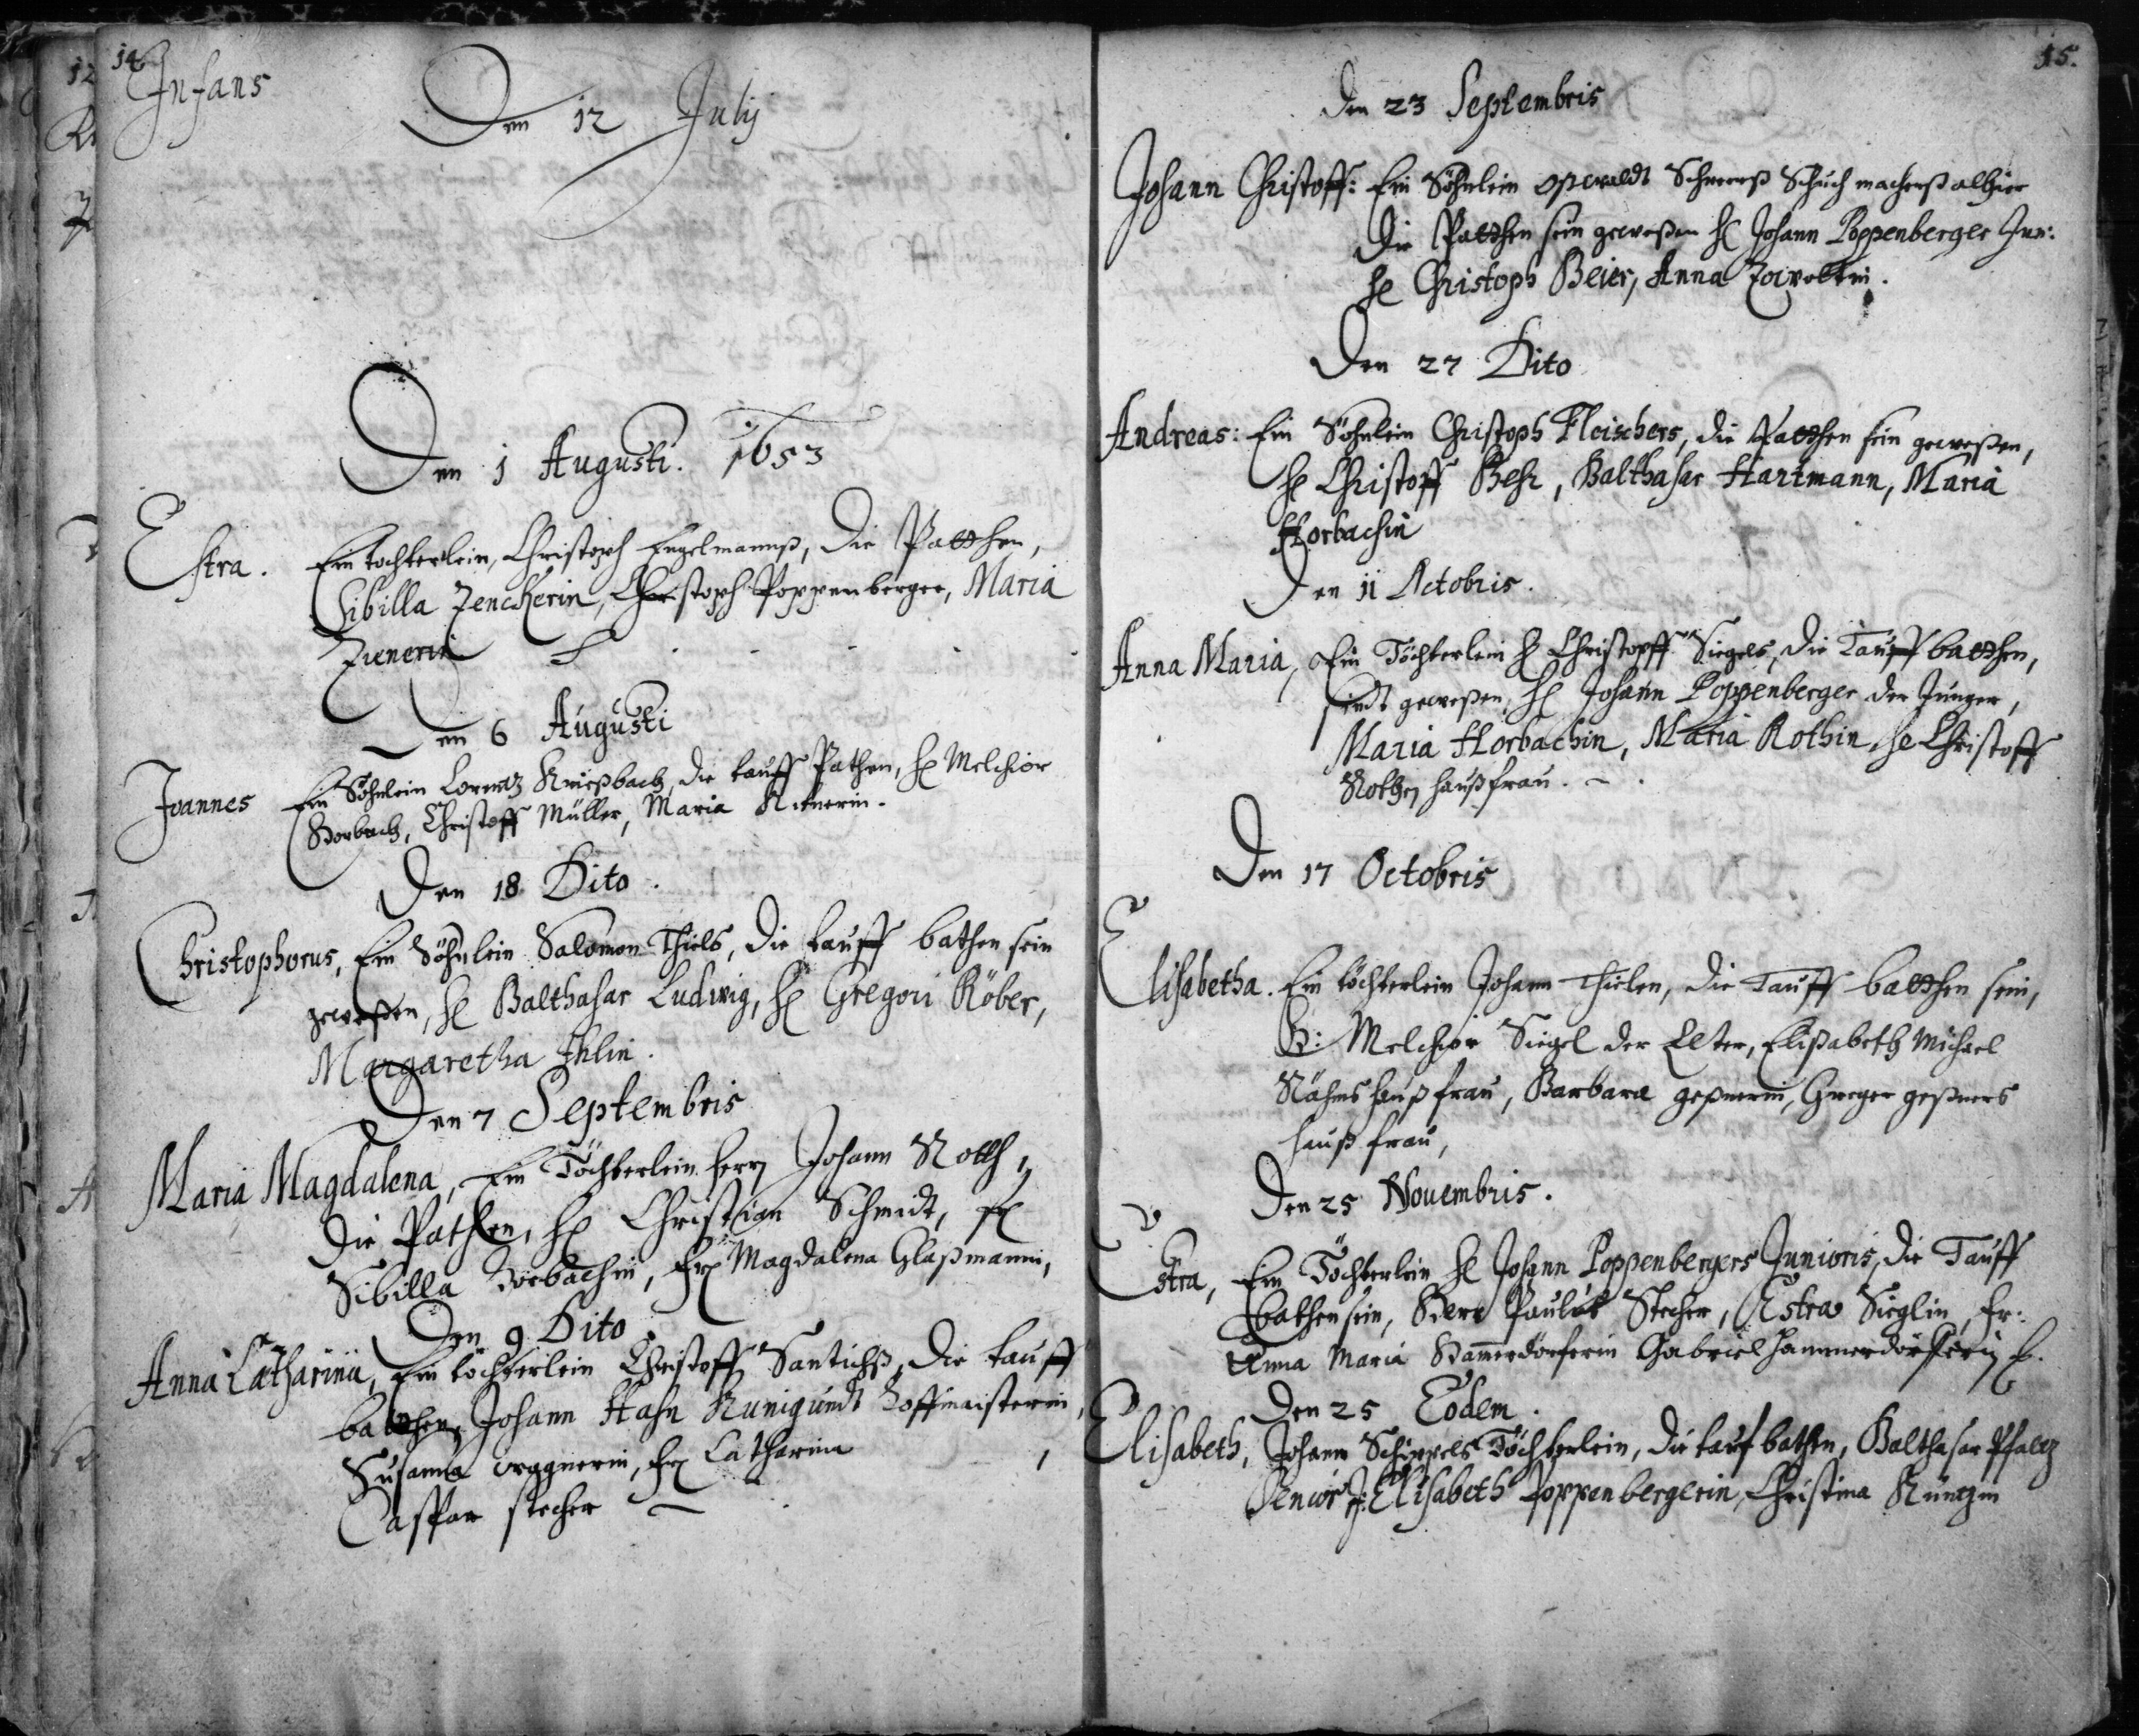 14
Infans
Den 12 Julij
Den 1 Augusti. 1653
Estra. Ein tochterlein, Christoph Engelmannß, Die Patthen,
Sibilla Zenckerin, Christoph Poppenberger, Maria
Zienerin
Den 6 Augusti
Joannes Ein Söhnlein Lorentz Krießbach, die tauff Pathen, H Melchior
Horbach, Christoff Müller, Maria
Den 18 Dito.
Christophorus, Ein Söhnlein Salomon Thiels, Die tauff bathen sein
geweßen, H Balthasar Ludwig, H Gregori Röber,
Margaretha Ihlin.
Den 7 Septembris
Maria Magdalena, Ein Töchterlein Herrn Johann Roth,
Die Pathen, H Christian Schmidt, fr
Sibilla Horbachin, Fr Magdalena Glaßmanin,
Den 9 Dito
Anna Catharina, Ein töchterlein Christoff Santichß, Die tauff
batthen, Johann Hahn Kunigundt Hoffmaisterin,
Susanna wagnerin, Fr Catharina
Caspar stecher
15.
Den 23 Septembris
Johann Christoff: Ein Söhnlein Oswaldt Schmerß Schuchmacherß alhier
Die Patthen sein geweßen H Johann Poppenberger Jun:
H Christoph Beier, Anna
Den 27 Dito
Andreas: Ein Söhnlein Christoph Fleischers, die Patthen sein geweßen,
H Christoff Behr, Balthasar Hartmann, Maria
Horbachin
Den 11 Octobris.
Anna Maria, Ein Töchterlein H Christopff Siegels, die Tauff batthen,
sindt geweßen, H Johann Poppenberger der Junger,
Maria Horbachin, Maria Rothin, H Christoff
Rothen haußfrau.
Den 17 Octobris
Elisabetha. Ein töchterlein Johann Thielen, die Tauff batthen sein,
H: Melchior Siegel der Elter, Elisabeth Michael
Nähms haußfrau, Barbara geßnerin, Greger geßners
hauß frau,
Den 25 Nouembris.
Estra, Ein Töchterlein H Johann Poppenbergers Junioris, die Tauff
bathen sein, Herr Paulus Stecher, Estra Sieglin, Fr:
Anna Maria Hamerdörferin Gabriel Hammerdörfferin
Den 25 Eodem.
Elisabeth, Johann Schippels Töchterlein, die tauf bathen, Balthasar Pfaltz
Senior, J: Elisabeth Poppenbergerin, Christina Küntzin